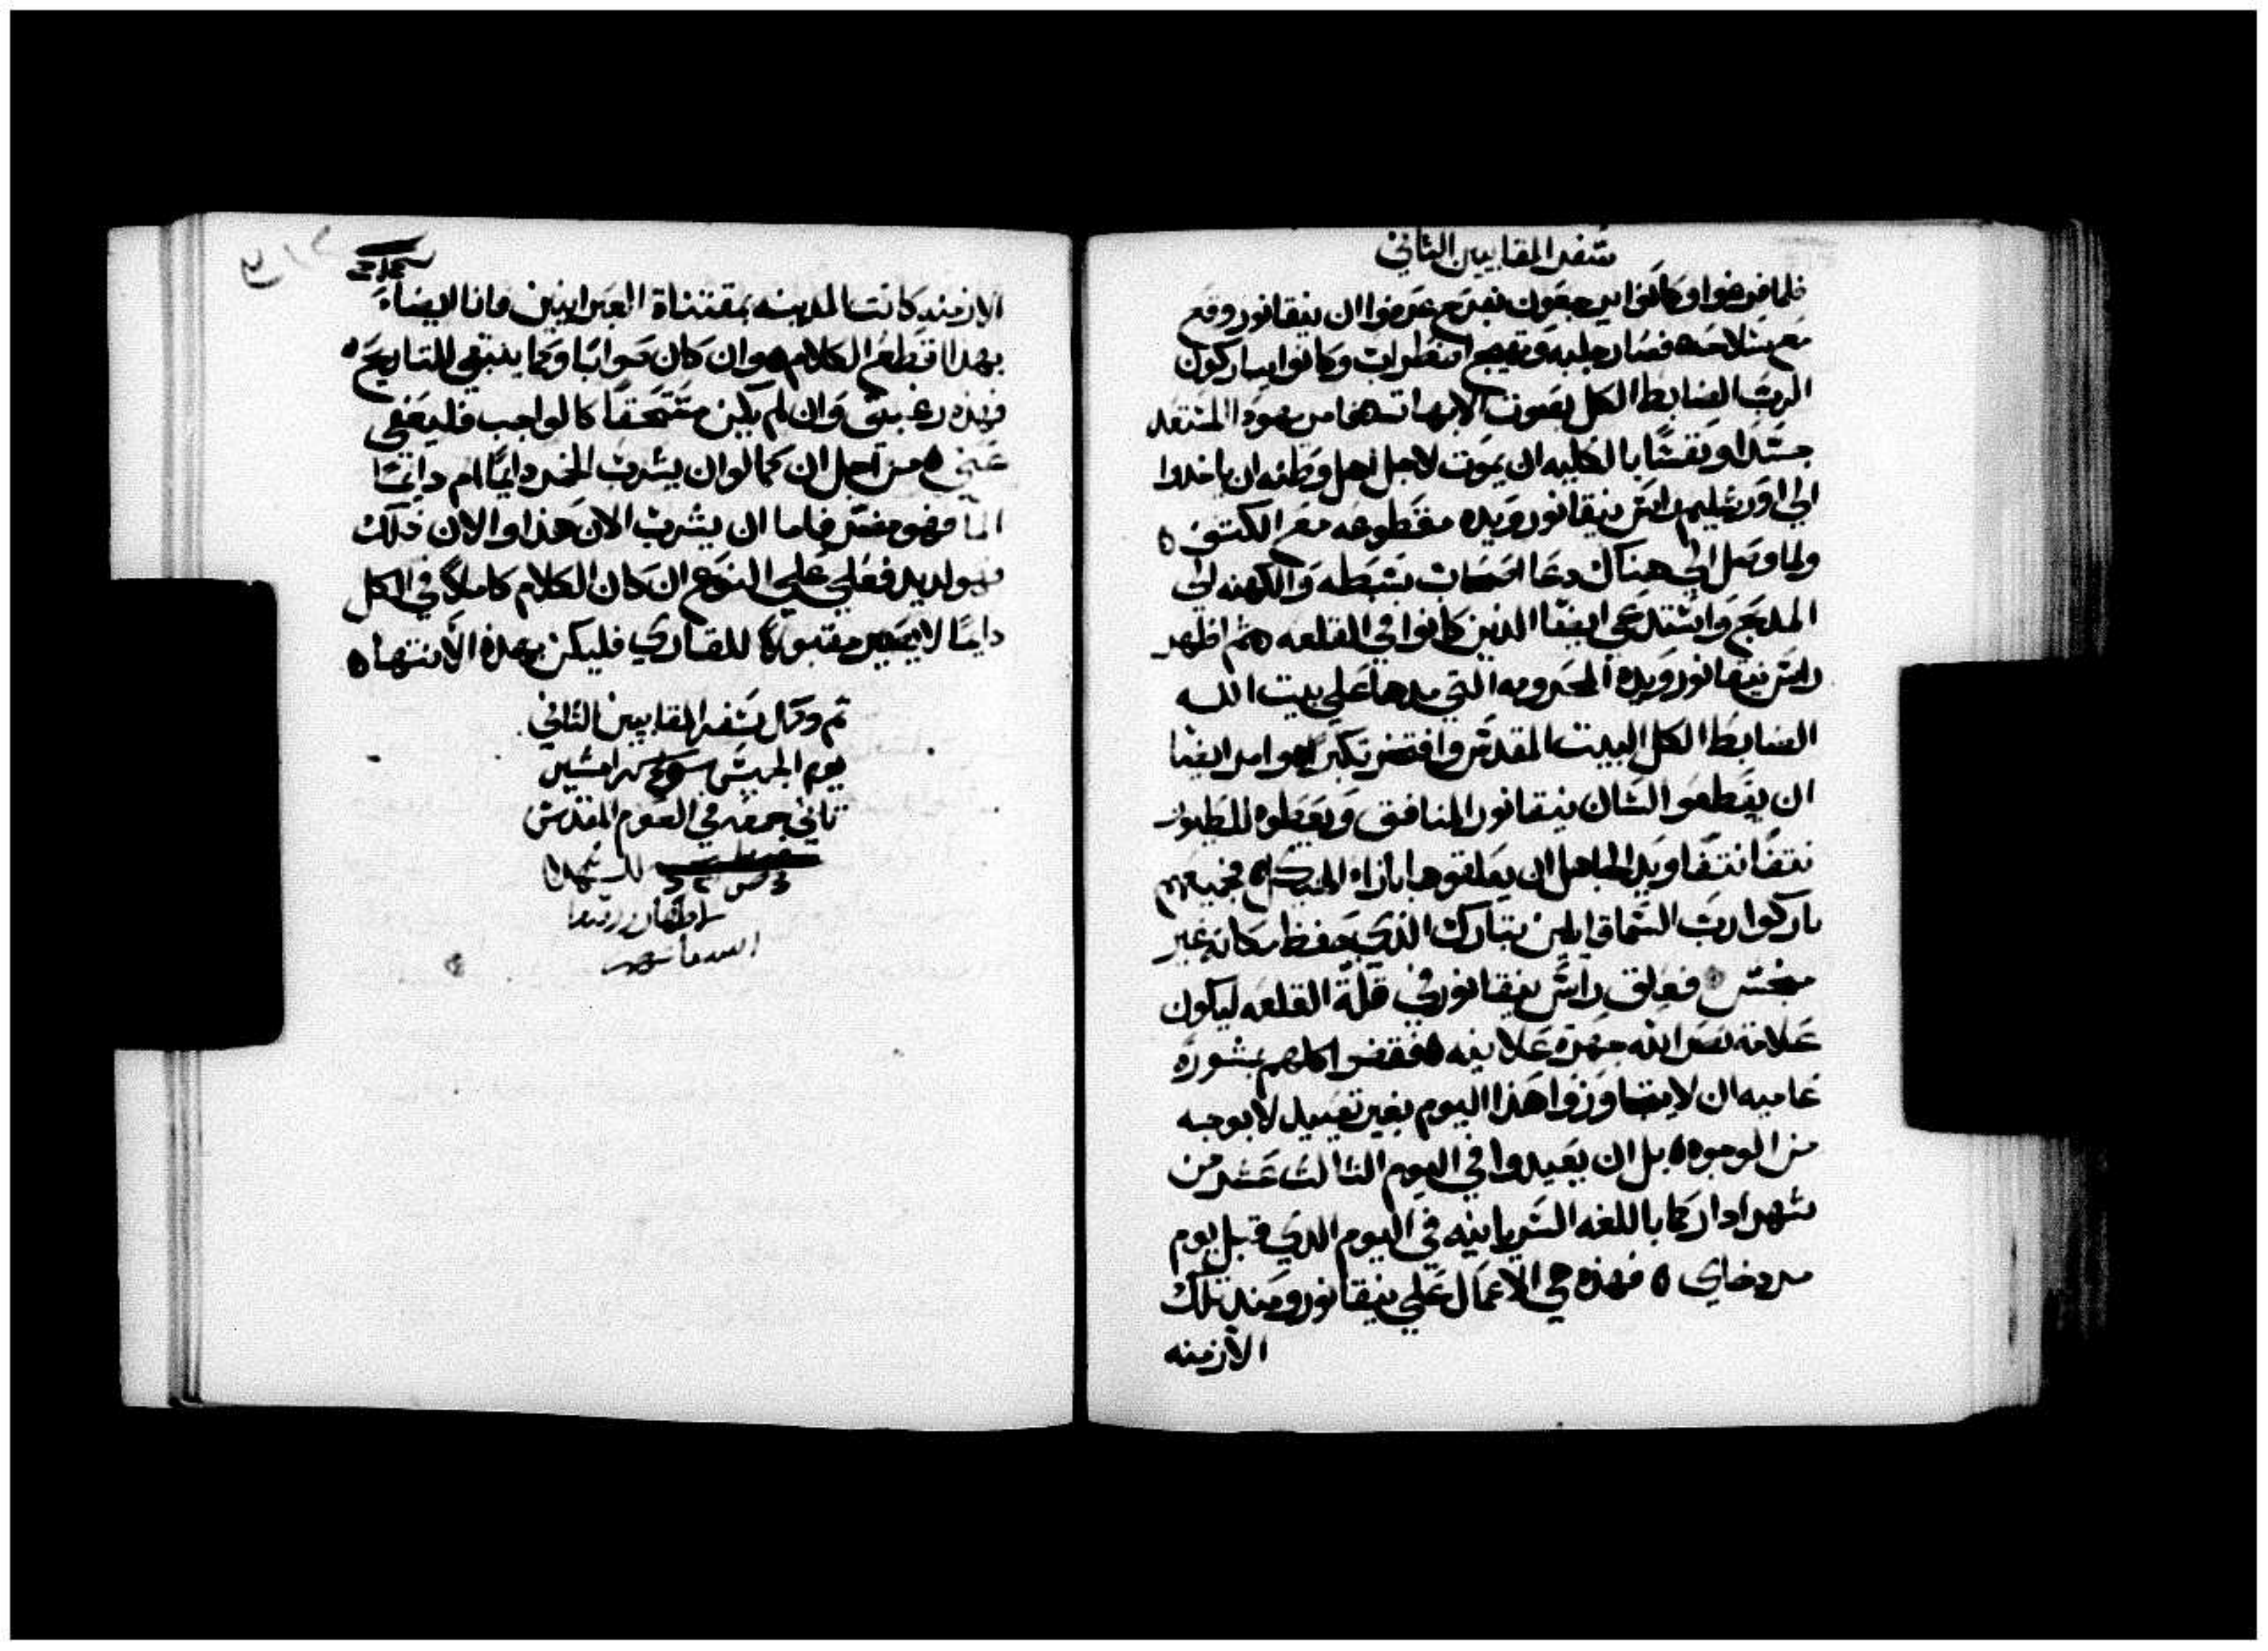 سفر المقابيين الثاني
فلما فرغوا وكانوا يرجعون بفرح عرفوا ان نيقانور وقع
مع سلاحه فصار جلبه وتهيج اضطراب وكانوا يباركون
الرب الضابط الكل بصوت الابهات فامر يهودا المستعد
جسدا ونفسا بالكليه ان يموت لاجل اهل وطنه ان ياخدوا
الي اورشليم راس نيقانور ويده مقطوعه مع الكتف ه
ولما وصل الي هناك دعا اصحاب سبطه والكهنه الي
المدبح واستدعي ايضا الدين كانوا في القلعه ه ثم اظهر
راس نيقانور ويده المحرومه التي مدها علي بيت الله
الضابط الكل البيت المقدس وافتخر تكبرا ه وامر ايضا
ان يقطعوا لسان نيقانور المنافق ويعطوه للطيور
نتفا نتفا ويد الجاهل ان يعلقوها بازاء الهيكل ه فجميعهم
باركوا رب السما قايلين تبارك الذي حفظ مكانه غير
منجس ه فعلق راس نيقانور في قلة القلعه ليكون
علامة نصر الله جهرة علانيه ه فقضوا كلهم بمشورة
عاميه ان لا يتجاوزوا هذا اليوم بغير تعييد لا بوجه
من الوجوه ه بل ان يعيدوا في اليوم الثالث عشر من
شهر ادار كما باللغه السريانيه في اليوم الدي قبل يوم
مردخاي ه فهذه هي الاعمال علي نيقانور ومند تلك
الازمنه
الازمنه كانت المدينه بمقتناة العبرانيين وانا ايضا
بهدا اقطع الكلام ه وان كان صوابا وكما ينبغي للتاريخ ه
فهذه رغبتي وان لم يكن مستحقا كالواجب فليغفي
عني ه من اجل ان كما لو ان يشرب الخمر دايما ام دايما
الما فهو مضر فاما ان يشرب الان هذا والان ذلك
فهو لديد فعلي علي النوع ان كان الكلام كاملا في الكل
دايما لا يصير مقبولا للقاري فليكن بهذه الانتها ه
تم وكمل سفر المقابيين الثاني
يوم الخميس امشير
تاني جمعه في الصوم المقدس
للشهدا
الاطهار